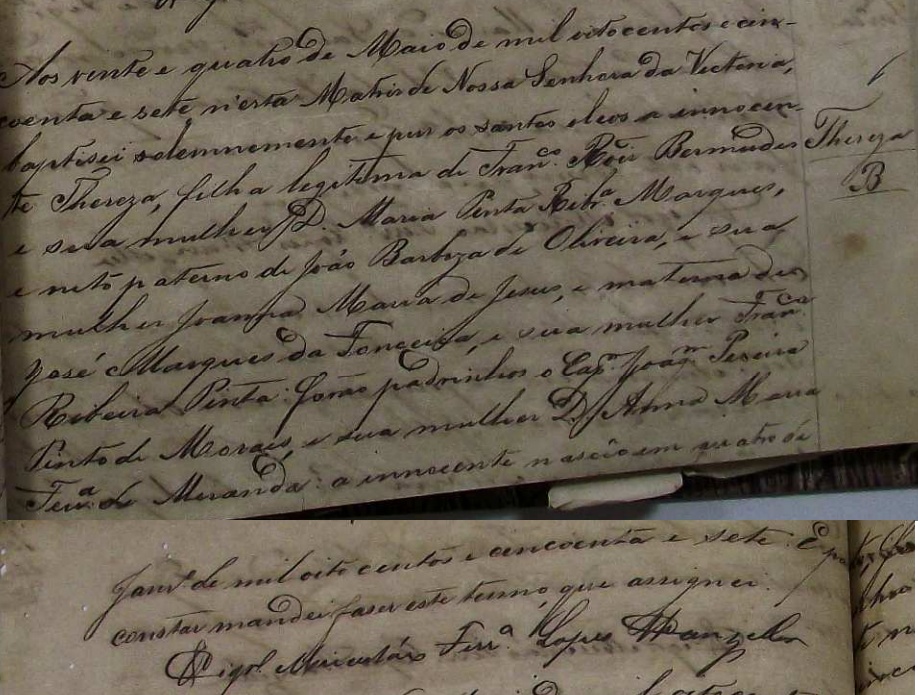 Aos vente e quatro de Maio de mil oito centos e cin-
coenta e sete n'esta Matris de Nossa Senhora da Victoria,
baptisei solemnemente e pus os santos oleos a innocen-
te Thereza, filha legitima de Fran.co Róis Bermudes
e sua mulher D. Maria Pinta Ribr.a Marques,
e neto paterno de João Barboza de Oliveira, e sua
mulher Joanna Maria de Jesus, e materna de
José Marques da Fonceca, e sua mulher Fran.ca
Ribeira Pinta: forão padrinhos o Cap.m Joaq.m Pereira
Pinto de Moraes, e sua mulher D. Anna Maria
Ferr.a de Meranda: a innocente nascêo em quatro de
Thereza
B
Janr.o de mil oito centos e cincoenta e sete. E p.a
constar mandei faser este termo, que assignei.
Ferr.a Lopes